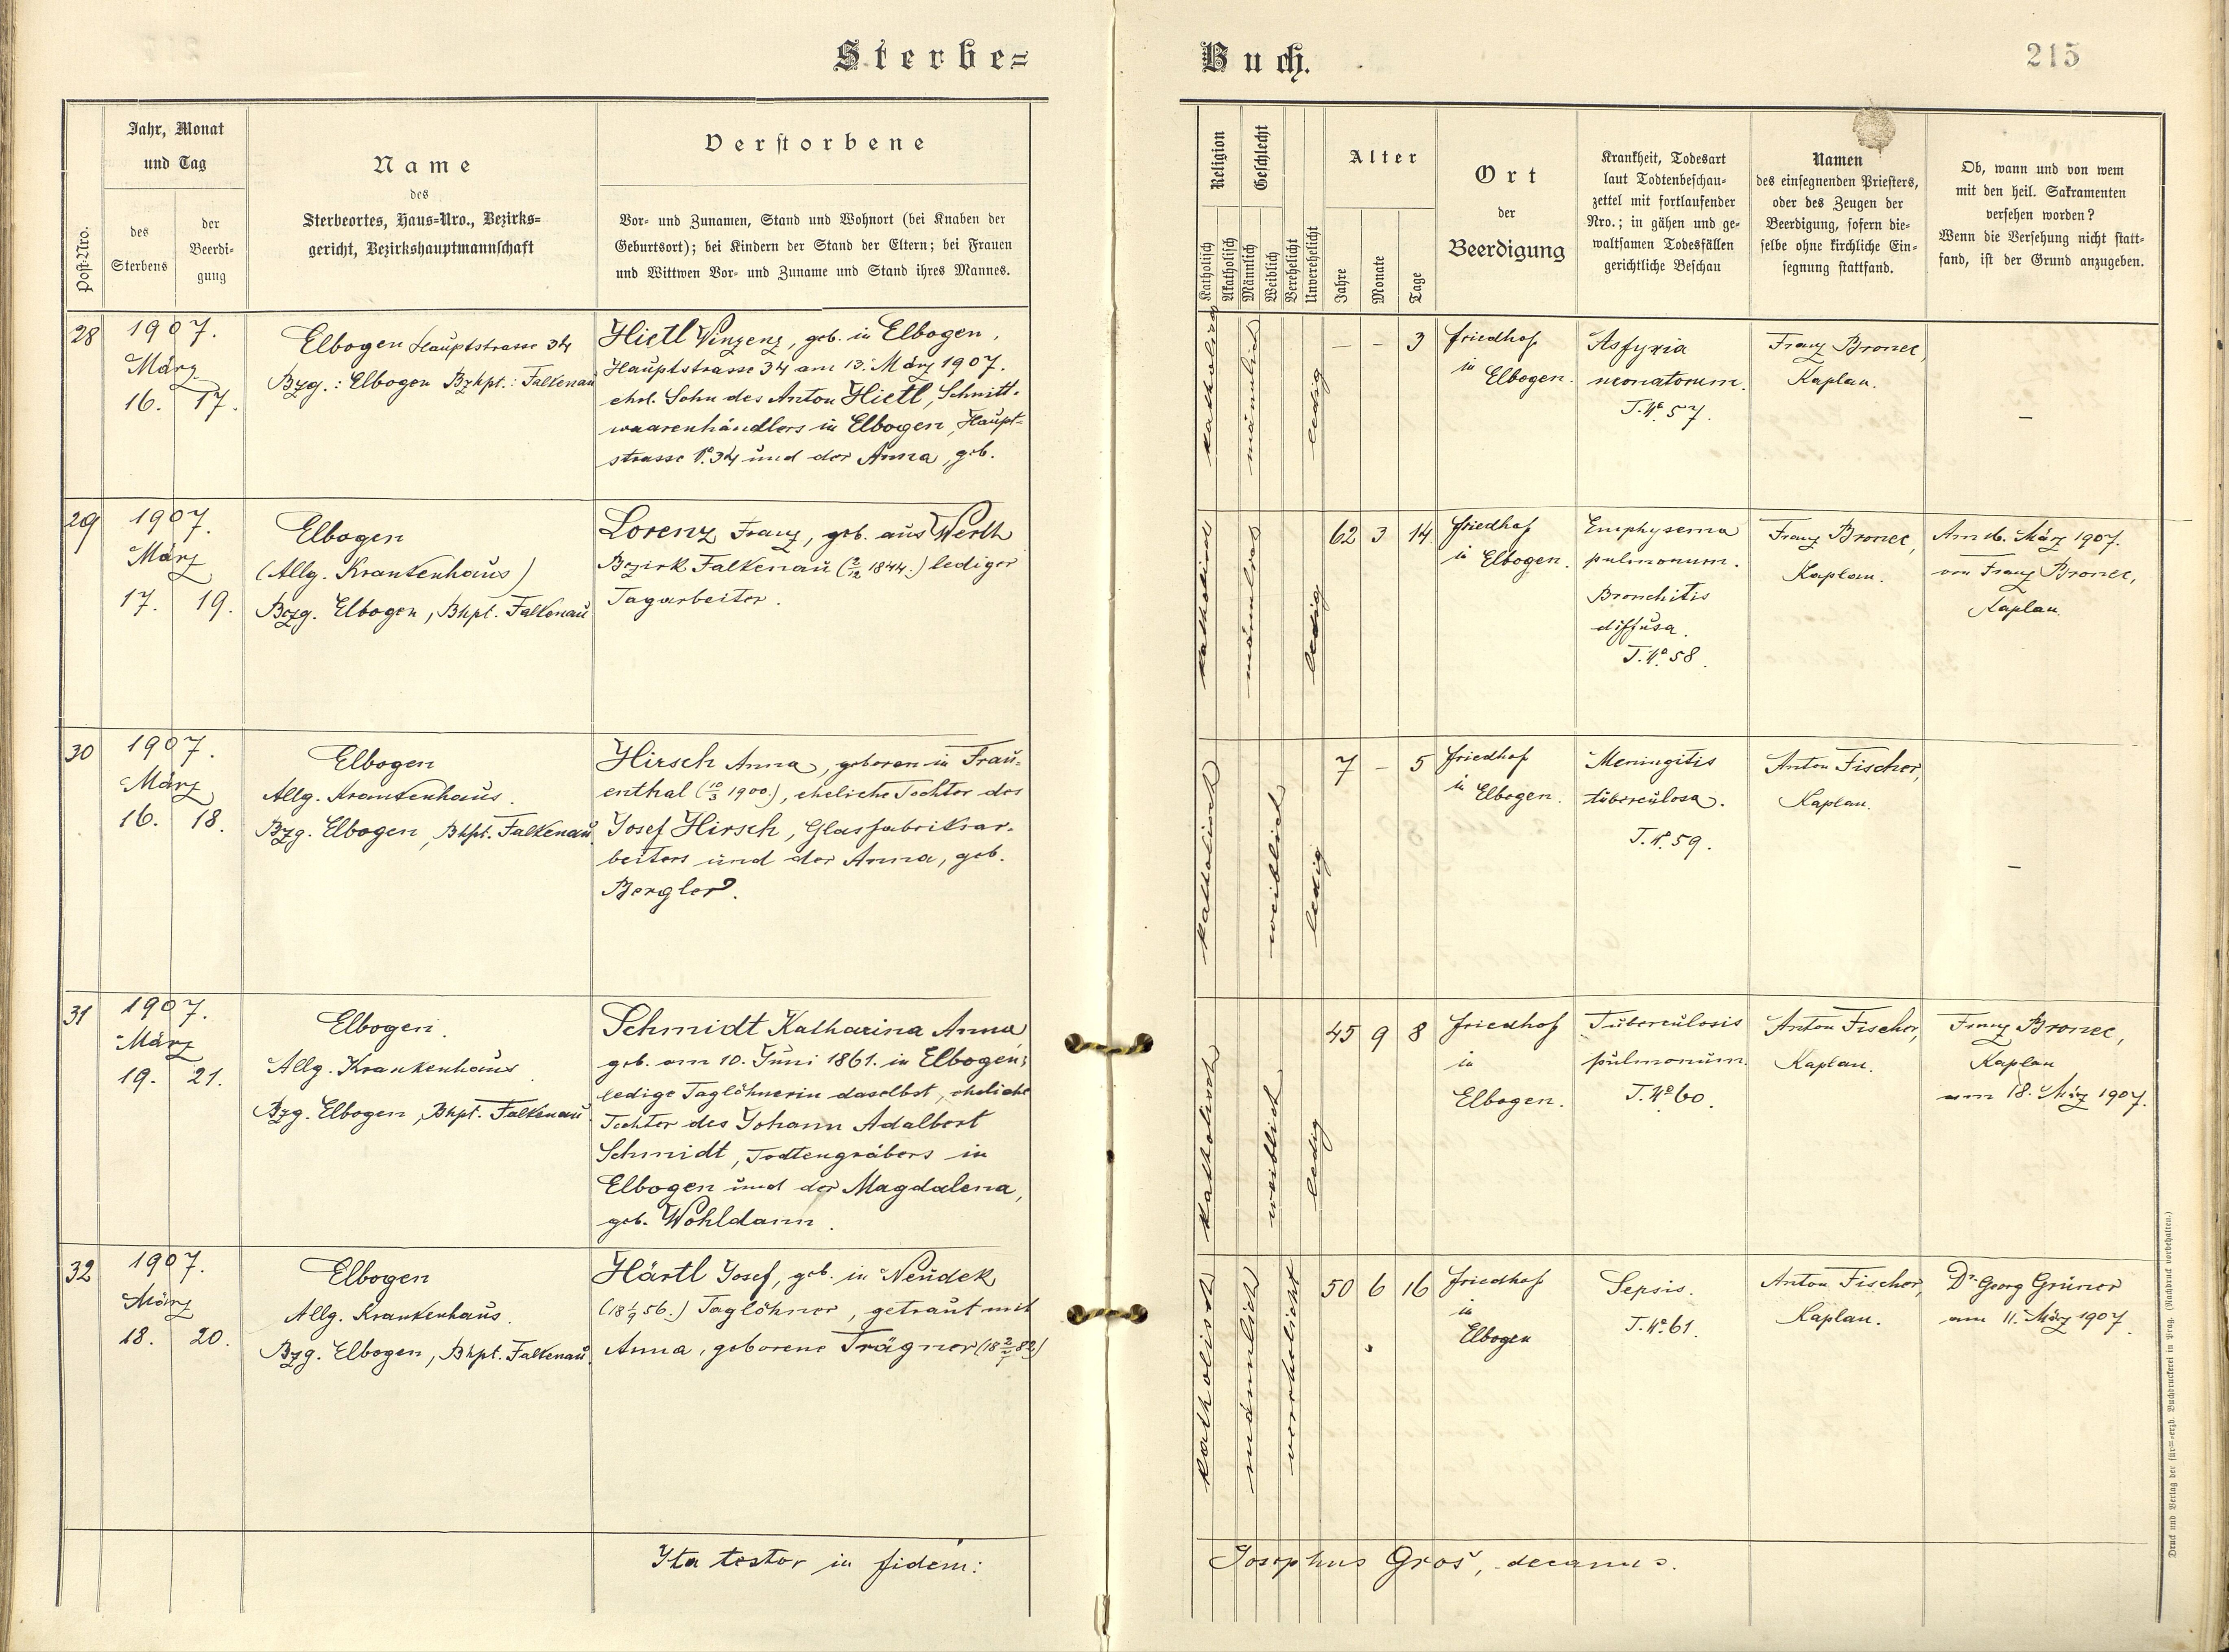 Sterbe=
Buch.
215
Post-Nro.
Jahr, Monat
und Tag
des
Sterbens
der
Beerdi-
gung
Name
des
Sterbeortes, Haus-Nro., Bezirks-
gericht, Bezirkshauptmannschaft
Verstorbene
Vor- und Zunamen, Stand und Wohnort (bei Knaben der
Geburtsort); bei Kindern der Stand der Eltern; bei Frauen
und Wittwen Vor- und Zuname und Stand ihres Mannes.
Religion
Katholisch
Akatholisch
Geschlecht
Männlich
Weiblich
Verehelicht
Unverehelicht
Alter
Jahre
Monate
Tage
Ort
der
Beerdigung
Krankheit, Todesart
laut Todtenbeschau-
zettel mit fortlaufender
Nro.; in gähen und ge-
waltsamen Todesfällen
gerichtliche Beschau
Namen
des einsegnenden Priesters,
oder des Zeugen der
Beerdigung, sofern die-
selbe ohne kirchliche Ein-
segnung stattfand.
Ob, wann und von wem
mit den heil. Sakramenten
versehen worden?
Wenn die Versehung nicht statt-
fand, ist der Grund anzugeben.
28
1907.
März
16. 17.
Elbogen Hauptstrasse 34
Bzg.: Elbogen Bzhpt.: Falkenau
Hietl Vinzenz, geb. in Elbogen,
Hauptstrasse 34 am 13. März 1907.
ehel. Sohn des Anton Hietl, Schnitt-
waarenhändlers in Elbogen, Haupt-
strasse No. 34 und der Anna, geb.
katholisch
männlich
ledig
— – 3
Friedhof
in
Elbogen.
Asfyxia
neonatorum.
T. No. 57.
Franz Bronec,
Kaplan.
–
29
1907.
März
17. 19.
Elbogen
(Allg. Krankenhaus)
Bezg. Elbogen, Bhpt. Falkenau
Lorenz Franz, geb. aus Werth
Bezirk Falkenau (2/12 1844.) lediger
Tagarbeiter.
katholisch
männlich
ledig
62 3 14
Friedhof
in Elbogen.
Emphysema
pulmonum.
Bronchitis
diffusa.
T. No. 58.
Franz Bronec,
Kaplan.
Am 16. März 1907.
von Franz Bronec,
Kaplan
30
1907.
März
16. 18.
Elbogen
Allg. Krankenhaus.
Bzg. Elbogen, Bhpt. Falkenau
Hirsch Anna, geboren in Frau-
enthal (10/3 1900.), eheliche Tochter des
Josef Hirsch, Glasfabriksar-
beiters und der Anna, geb.
Bergler.
katholisch
weiblich
ledig
7 – 5
Friedhof
in Elbogen.
Meningitis
tuberculosa.
T. No. 59.
Anton Fischer,
Kaplan.
–
31
1907.
März
19. 21.
Elbogen.
Allg. Krankenhaus.
Bzg. Elbogen, Bhpt. Falkenau
Schmidt Katharina Anna
geb. am 10. Juni 1861. in Elbogen;
ledige Taglöhnerin daselbst, eheliche
Tochter des Johann Adalbert
Schmidt, Todtengräbers in
Elbogen und der Magdalena,
geb. Wohldann.
katholisch
weiblich
ledig
45 9 8
Friedhof
in
Elbogen.
Tuberculosis
pulmonum.
T. No. 60.
Anton Fischer,
Kaplan.
Franz Bronec,
Kaplan
am 18. März 1907.
32
1907.
März
18. 20.
Elbogen
Allg. Krankenhaus.
Bzg. Elbogen, Bhpt. Falkenau
Härtl Josef, geb. in Neudek
(18 1/9 56.) Taglöhner, getraut mit
Anna, geborene Trägner
katholisch
männlich
verehelicht
50 6 16
Friedhof
in
Elbogen
Sepsis.
T. No. 61.
Anton Fischer,
Kaplan.
Dr. Georg Grüner
am 11. März 1907.
Ita testor in fidem:
Josephus Groš, decanus.
Druck und Verlag der fürst-erzb. Buchdruckerei in Prag. (Nachdruck vorbehalten.)